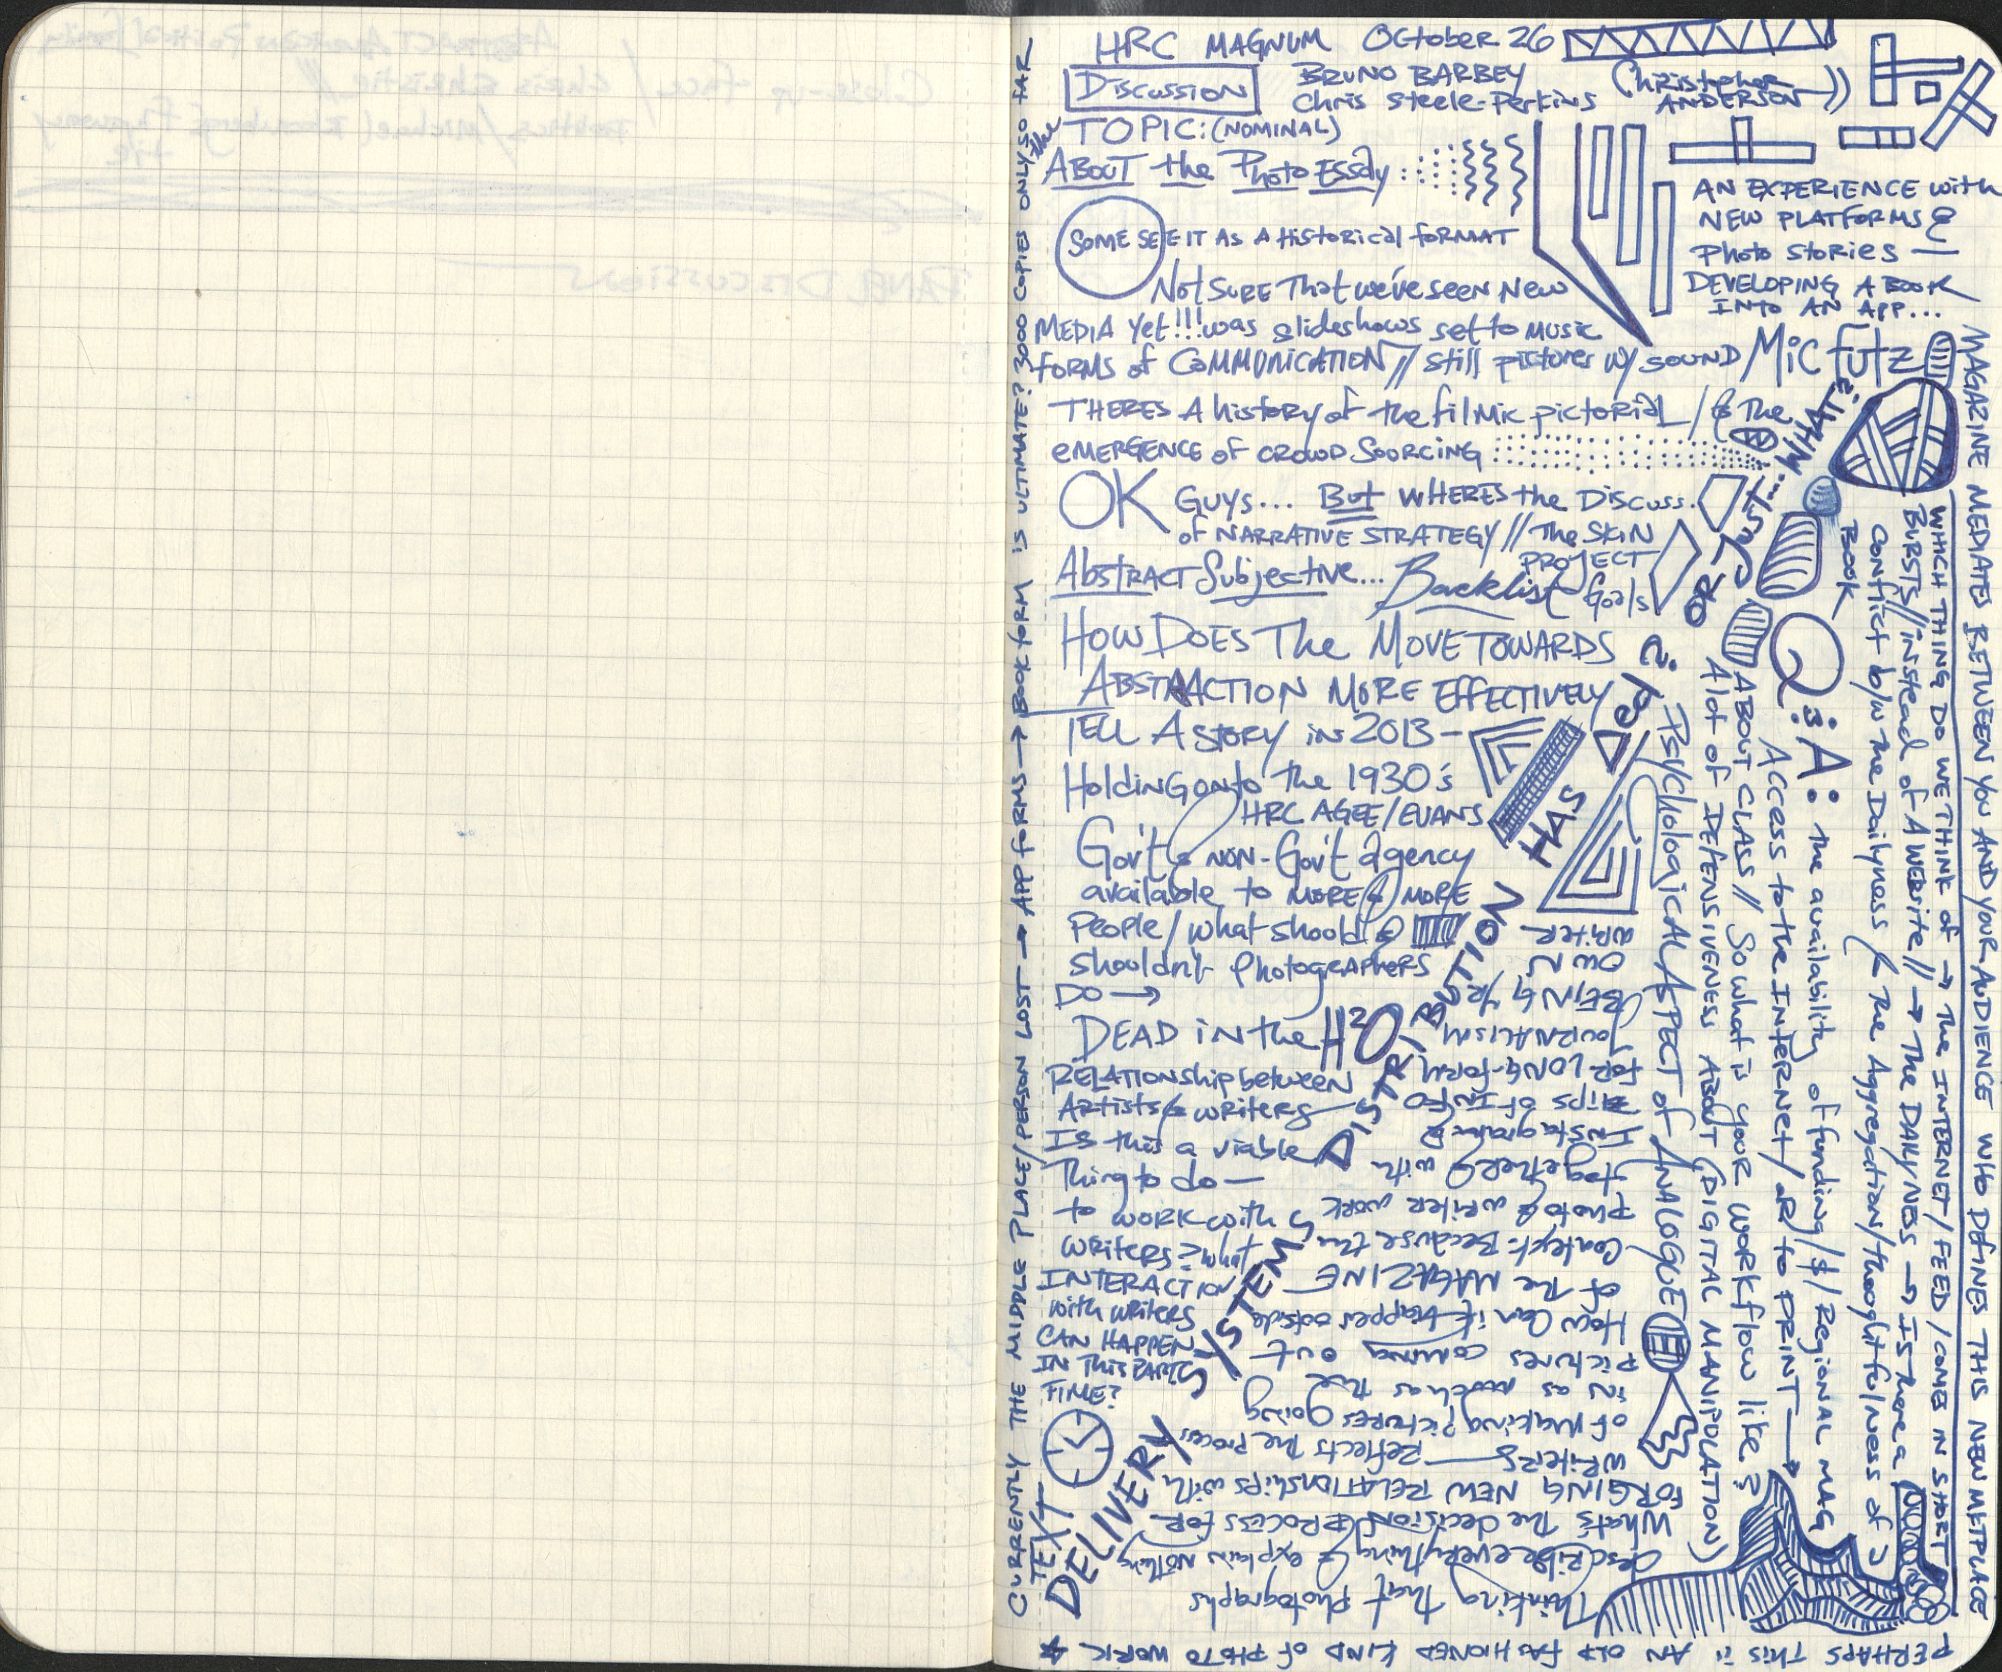 HRC MAGNUM October 26
Discussion
BRUNO BARBEY
Chris Steele-Perkins
(Christopher
ANDERSON))
TOPIC: (NOMINAL)
the
ABOUT the Photo Essay
SOME SEE IT AS A Historical FORMAT
Not SURE That we've seen New
MEDIA Yet!!! was slideshows set to music
FORMS of COMMUNICATION // still pictures w/ SOUND / Mic futz
AN EXPERIENCE with
NEW PLATFORMS &
Photo Stories —
DEVELOPING A BOOK
INTO AN APP...
THERES A history of the filmic pictorial / & The
EMERGENCE of CROWD SOURCING
OR Just... WHAT?
OK GUYS... But WHERES the Discuss.
of NARRATIVE STRATEGY // The SKIN
PROJECT
Abstract Subjective... Backlist Goals
HOW DOES The MOVE TOWARDS
ABSTRACTION MORE EFFECTIVELY
TELL A STORY in 2013 -
Holding onto the 1930's
HRC AGEE/EVANS
Gov't & NON-Gov't agency
available to MORE & MORE
People / what should &
Shouldn't Photographers
DO →
DEAD IN the H2O
RELATIONship between
Artists & writers
Is this a viable
Thing to do —
to work with
writers? what
INTERACTION
with writers
CAN HAPPEN
IN this PART
TIME?
TEXT
DELIVERY SYSTEMS
DISTRIBUTION HAS
Thinking that Photographs
describe everything & explain nothing
What's the decision PROCESS FOR
FORGING NEW RELATIONships with
writers — Reflects the Process
of making pictures going
in as much as the
pictures coming out
How Can it happen outside
of the MAGAZINE
Context. Because the
photo & writer work
together with
Instagram &
of INFO
FOR LONG-form
JOURNALISM
BEING YR
OWN
WRITER
Psychological ASPECT of ANALOGUE
A lot of DEFENSIVENESS ABOUT (DIGITAL MANIPULATION)
ABOUT CLASS // So what is your workflow like?
Q & A:
Access to the INTERNET / OR to PRINT →
The availability of funding / $ / Regional MAG
BOOK
Conflict b/w the Dailyness / the Aggregation / thoughtfulness of
BURSTS // instead of A WEBSITE // → The DAILYNESS → IS there a
WHICH THING DO WE THINK of → The INTERNET / FEED / COME IN SHORT
MAGAZINE MEDIATES BETWEEN YOU AND YOUR AUDIENCE WHO DEFINES THIS NEW METPLACE
PERHAPS THIS IS AN OLD FASHIONED KIND OF PHOTO WORK
CURRENTLY THE MIDDLE PLACE/PERSON LOST → APP FORMS → BOOK FORM IS ULTIMATE? 3000 COPIES ONLY SO FAR